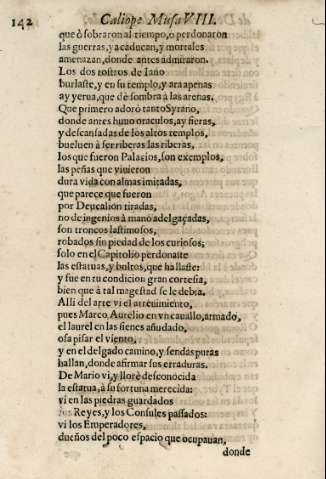 142 Caliope Musa VIII.
que ò sobraron al tiempo, o perdonaron
las guerras, y a caducan, y mortales
amenazan, donde antes admiraron.
Los dos rostros de Iano
burlaste, y en su templo, y ara apenas
ay yerua, que dè sombra à las arenas.
Que primero adorò tanto Tyrano,
donde antes huuo oraculos, ay fieras,
y descansadas de los altos templos,
bueluen à ser riberas las riberas,
los que fueron Palacios, son exemplos,
las peñas que viuieron
dura vida con almas imitadas,
que parece que fueron
por Deucalion tiradas,
no de ingenios à mano adelgaçadas,
son troncos lastimosos,
robados sin piedad de los curiosos;
solo en el Capitolio perdonaste
las estatuas, y bultos, que hallaste:
y fue en tu condicion gran cortesia,
bien que à tal magestad se le debia.
Alli del arte vi el atreuimiento,
pues Marco Aurelio en vn cauallo, armado,
el laurel en las sienes añudado,
osa pisar el viento,
y en el delgado camino, y sendas puras
hallan, donde afirmar sus erraduras.
De Mario vi, y llorè desconocida
la estatua, à su fortuna merecida:
vi en las piedras guardados
los Reyes, y los Consules passados:
vi los Emperadores,
dueños del poco espacio que ocupauan,
donde